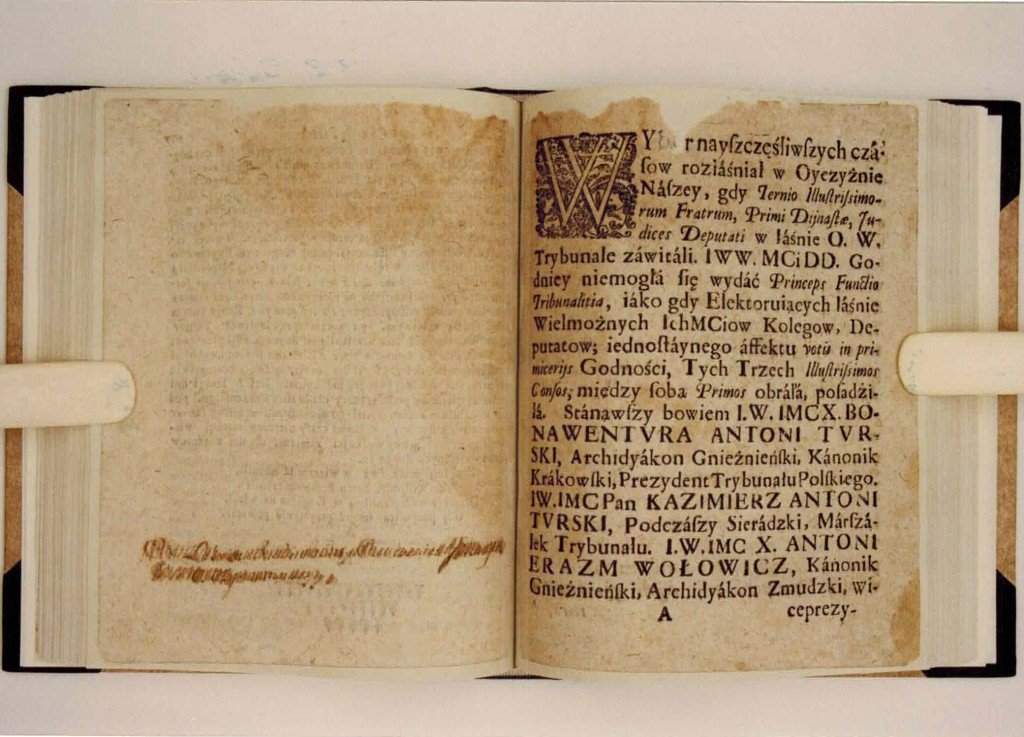 WY r nayſzczęśliwſzych czá-
ſow roziáśniał w Oyczyźnie
Nászey, gdy Ternio Illuſtriſsimo-
rum Fratrum, Primi Dijnaſtæ, Ju-
dices Deputati w Iáśnie O. W.
Trybunale záwitáli. IWW. MCiDD. Go-
dniey niemogłá ſię wydáć Princeps Functio
Tribunalitia, iáko gdy Elektoruiących Iáśnie
Wielmożnych IchMCiow Kolegow, De-
putatow; iednoſtáynego áffektu votis in pri-
micerijs Godności, Tych Trzech Illuſtriſsimos
Conſos, miedzy ſoba Primos obráłá, poſadźi-
łá. Stánawſzy bowiem I.W. IMCX. BO-
NAWENTVRA ANTONI TVR-
SKI, Archidyákon Gnieźnieńſki, Kánonik
Krákowſki, Prezydent Trybunału Polſkiego.
IW.IMCPan KAZIMIERZ ANTONI
TVRSKI, Podczáſzy Sierádzki, Márſzá-
łek Trybunału. I.W.IMC X. ANTONI
ERAZM WOŁOWICZ, Kánonik
Gnieźnieńſki, Archidyákon Zmudzki, Wi-
A ceprezy-